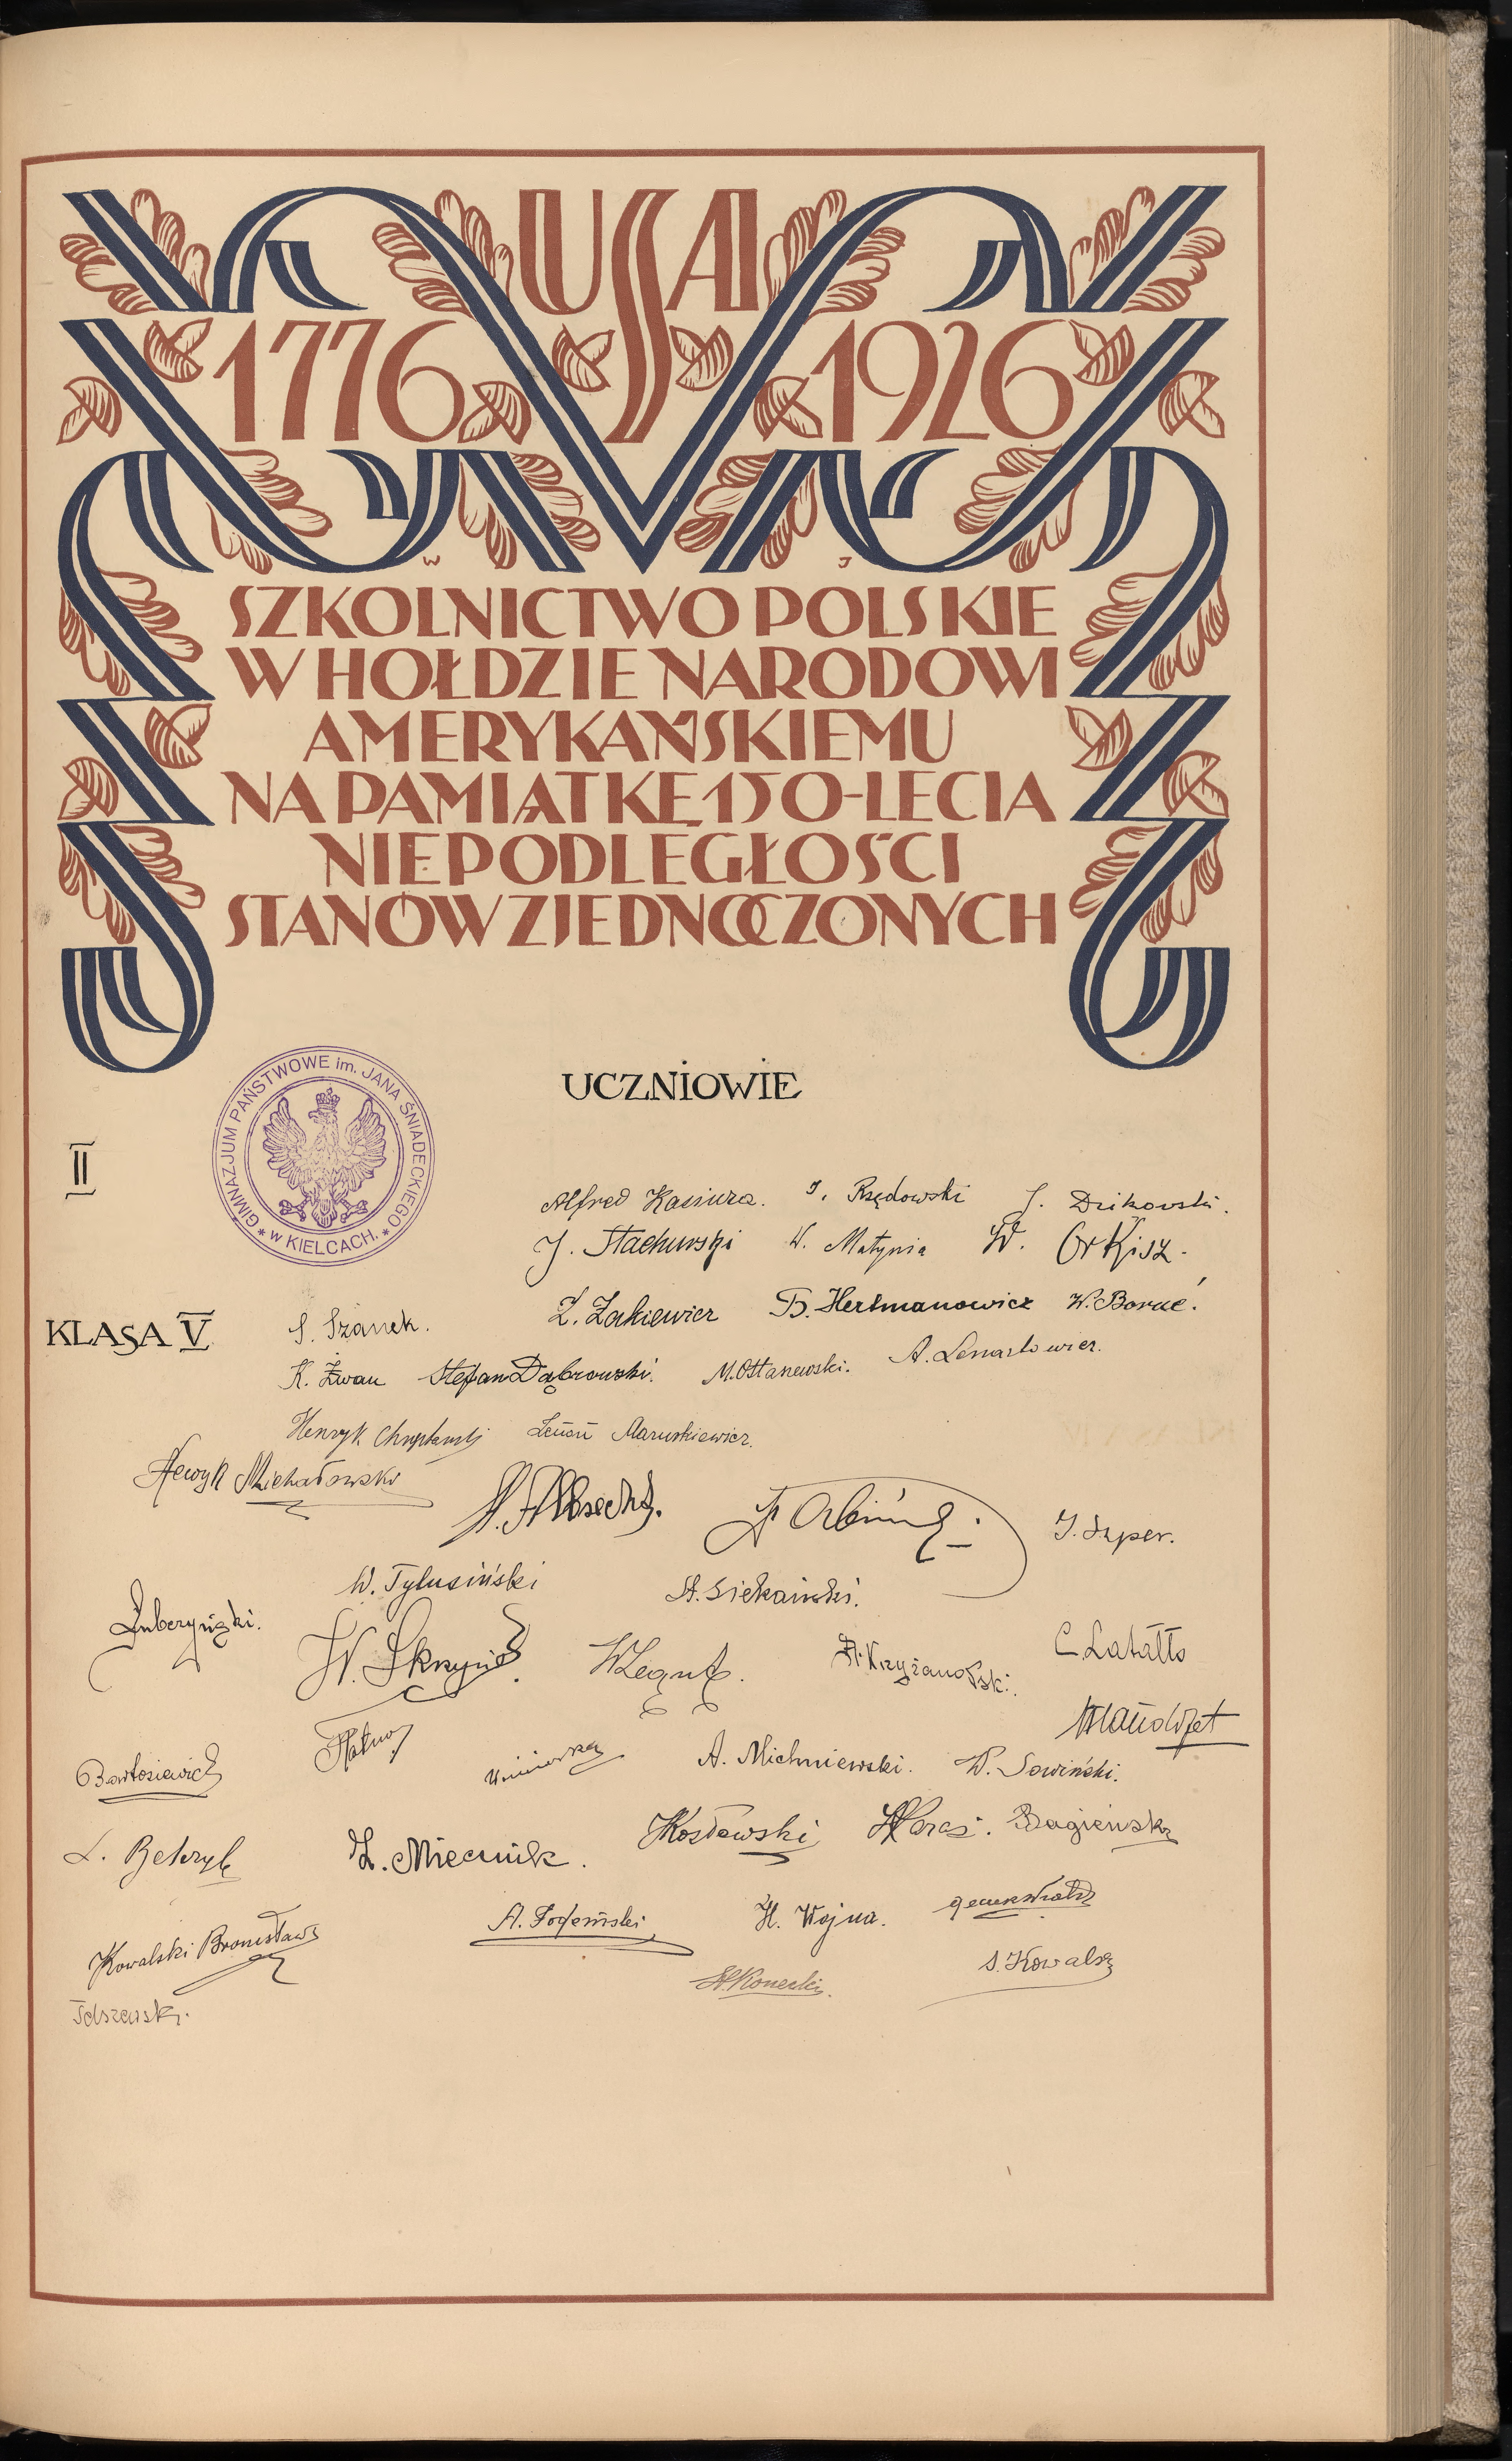 USA
1776 1926
W J
SZKOLNICTWO POLSKIE
W HOŁDZIE NARODOWI
AMERYKAŃSKIEMU
NA PAMIĄTKĘ 150-LECIA
NIEPODLEGŁOŚCI
STANÓW ZJEDNOCZONYCH
GIMNAZJUM PAŃSTWOWE im. JANA ŚNIADECKIEGO
* w KIELCACH. *
UCZNIOWIE
II
Alfred Kasiura. J. Rzędowski J. Dzikowski.
J. Stachurski W. Matynia W. Orkisz.
Z. Zakiewicz B. Hertmanowicz W. Boruć.
KLASA V S. Szanek.
K. Żwan Stefan Dąbrowski. M. Ostanewski. A. Lenartowicz.
Henryk Zenon Maruszkiewicz.
Henryk Michałowski
A. Albrecht. J. Szper.
W. Tylusiński St. Siekański.
W. Skrzypiec W. St. Krzyżanowski. C. Latałło
Bartosiewicz A. Michniewski. W. Sowiński.
L. Z. Miecznik. Kosłowski Bagieński
Kowalski Bronisław H. Wojna.
St. Konecki. S. Kowalski